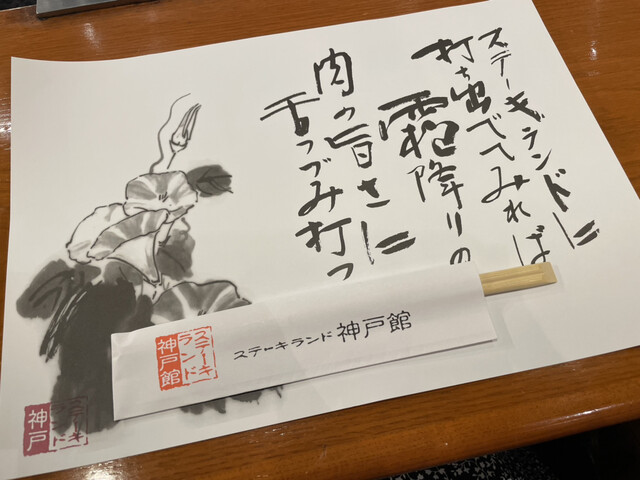 ステーキランドに
打ち出でてみれば
霜降りの
肉の旨さに
舌つづみ打つ
ステーキランド 神戸館
ステーキ
ランド
神戸館
ステーキ
ランド
神戸